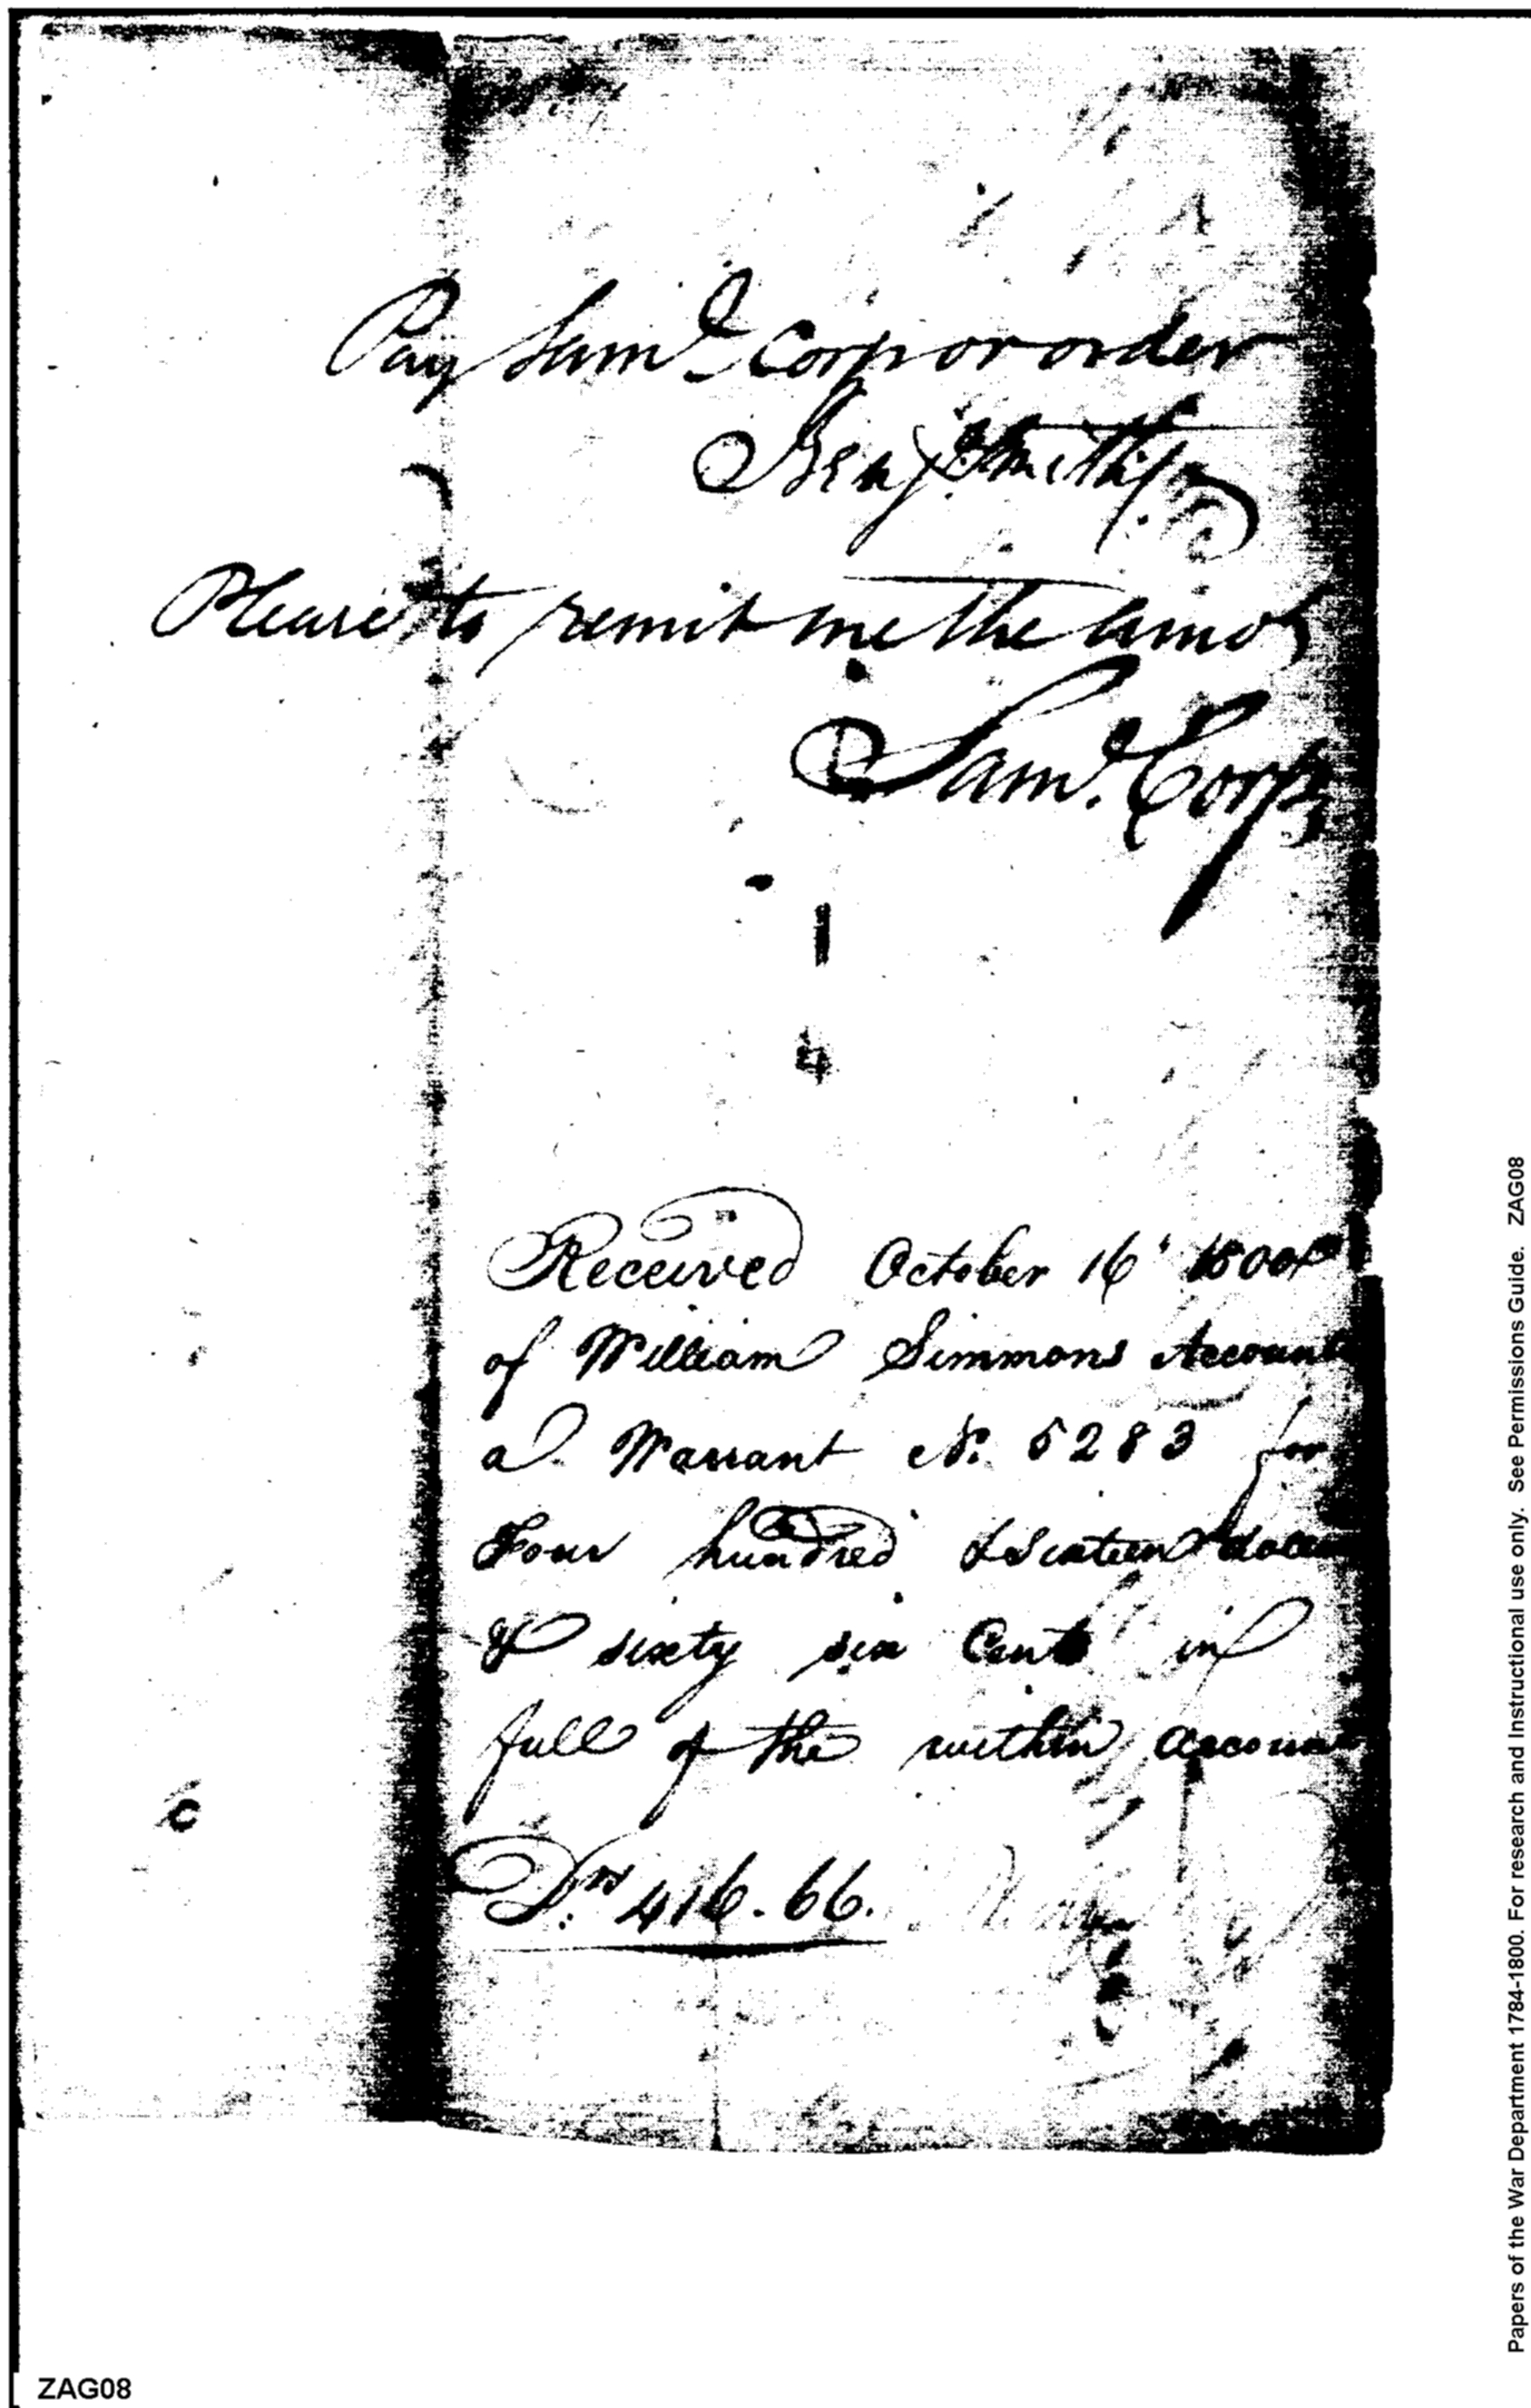 Pay Saml. Corp or order
Benj. Smith
Please to remit me the amot
Saml. Corp
4
Received October 16' 1800
of William Simmons Account
a Warrant No. 5283 for
Four hundred & Sixteen dollar
& sixty six Cents in
full of the within account
Drs 416.66.
ZAG08
Papers of the War Department 1784-1800. For research and Instructional use only. See Permissions Guide. ZAG08